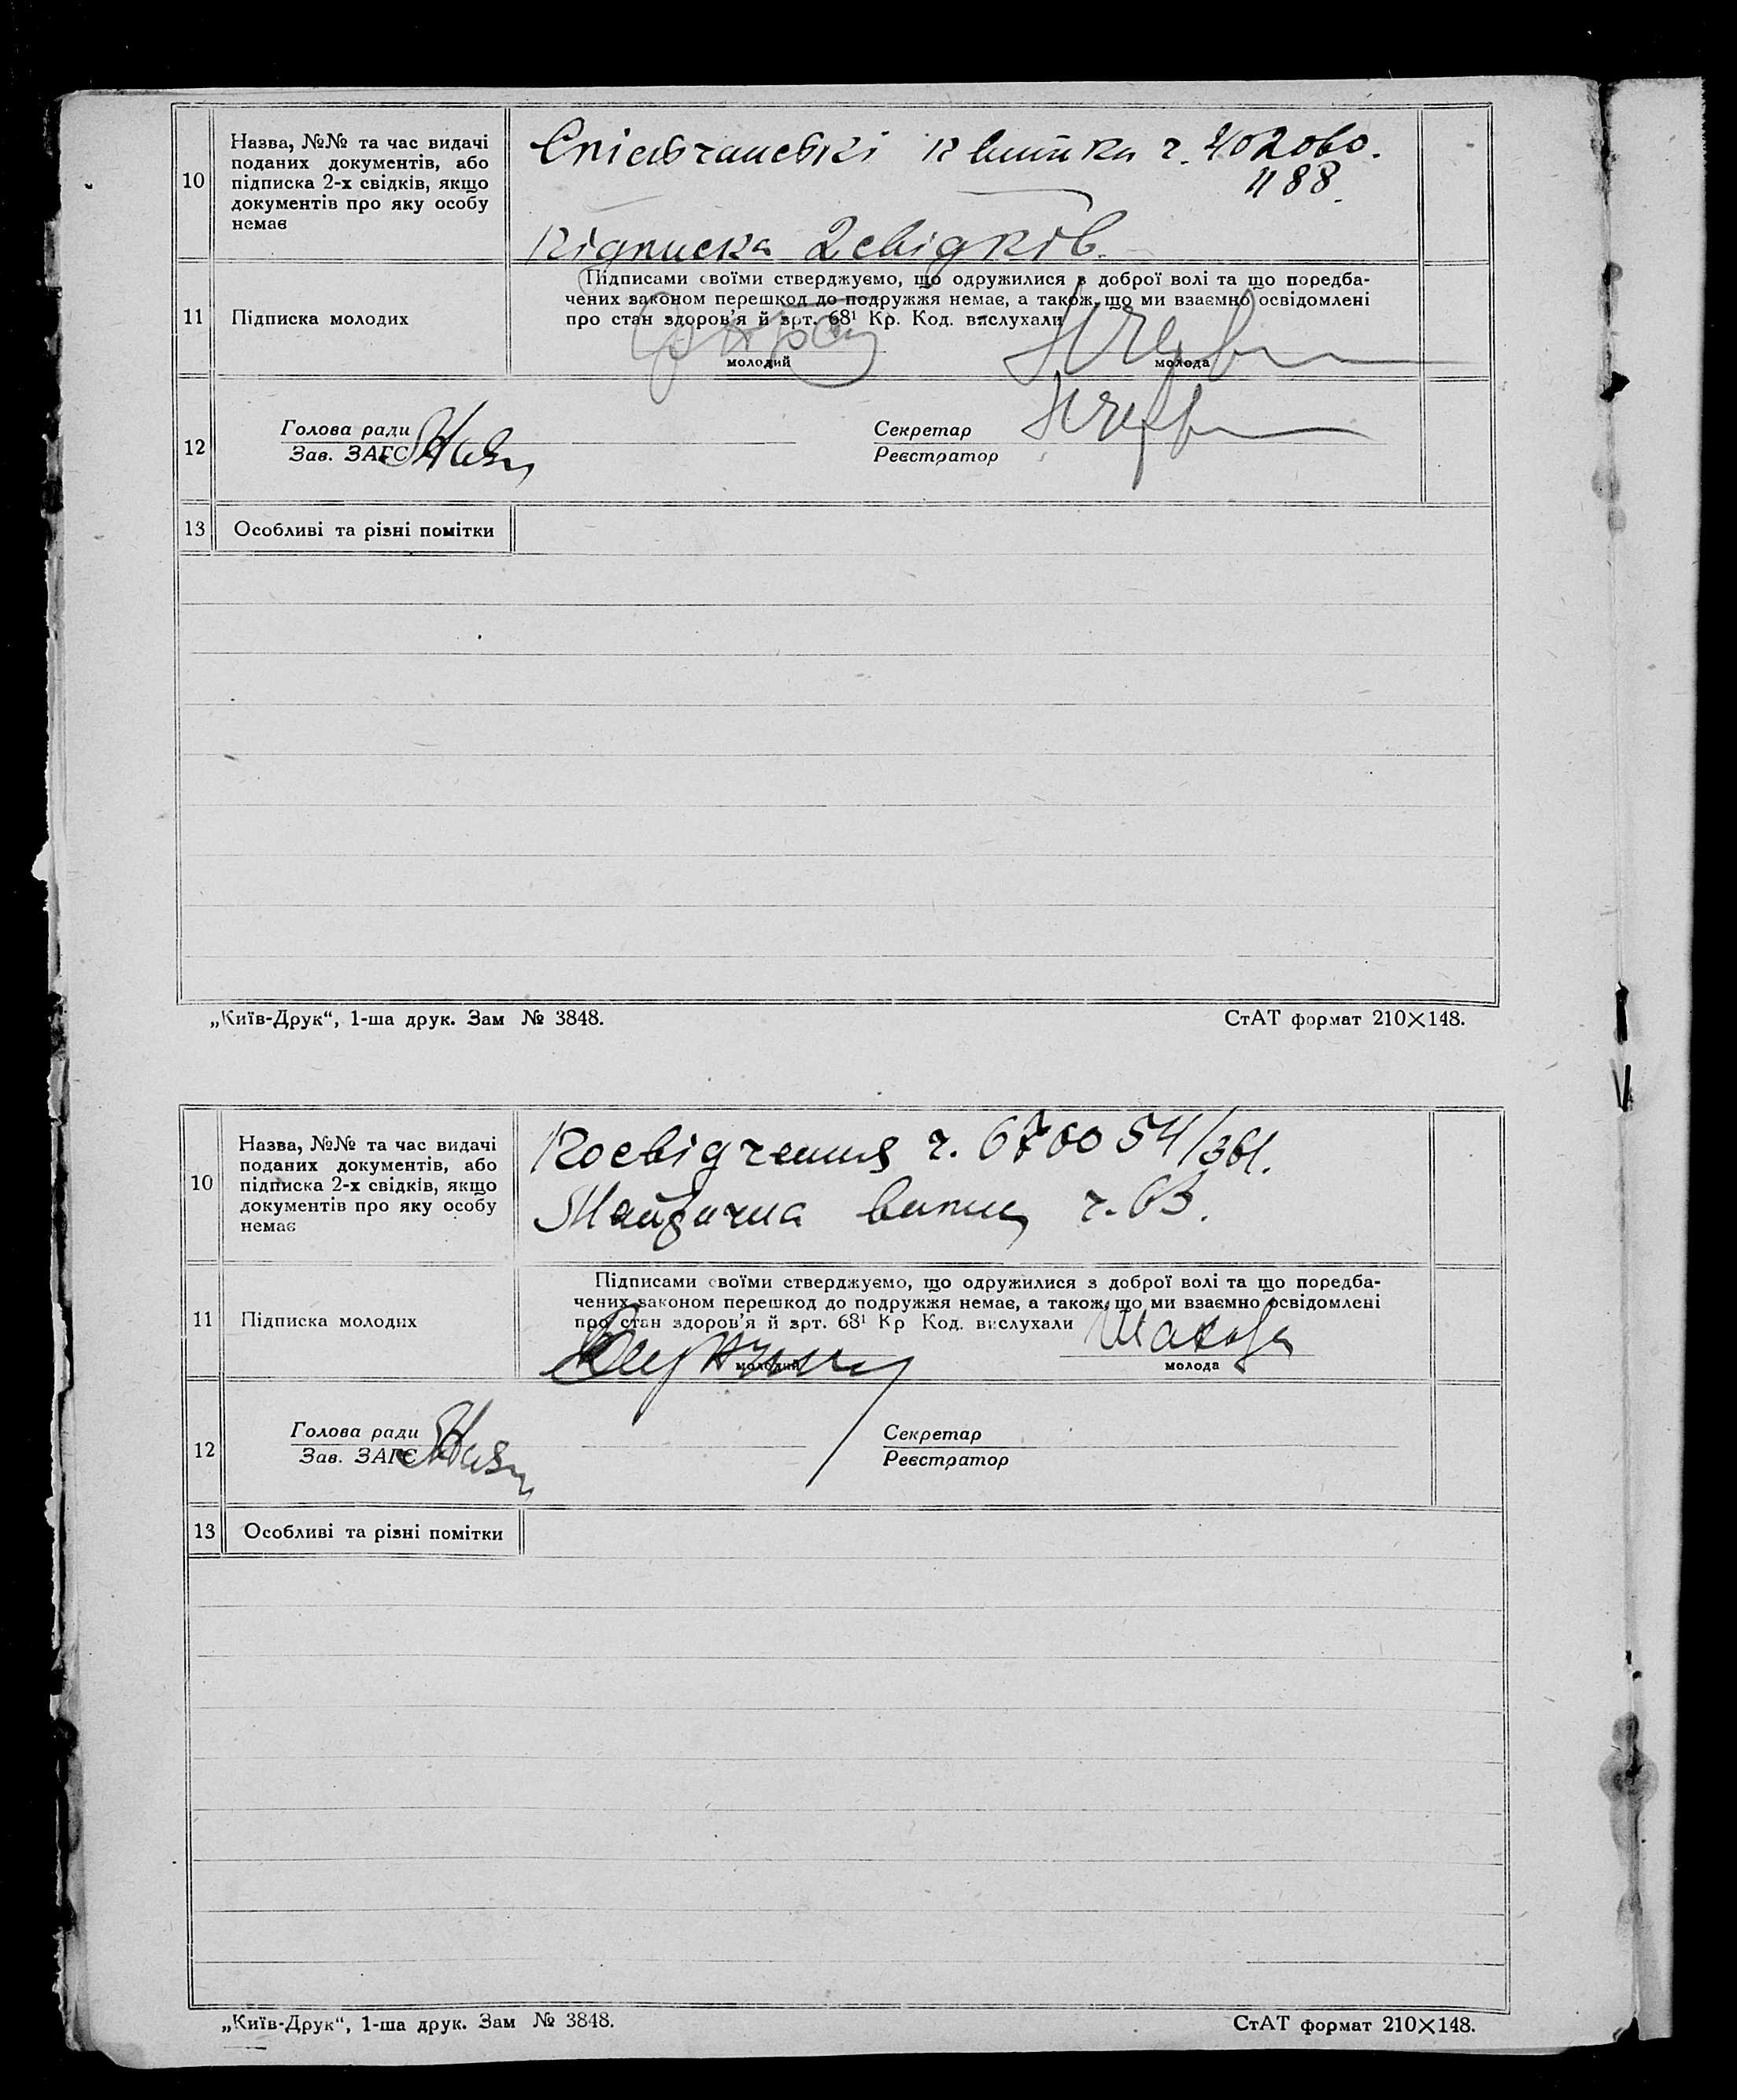 10
Назва, №№ та час видачі
поданих документів, або
підписка 2-х свідків, якщо
документів про яку особу
немає
квитки ч.
1188.
Підписка 2 свідків.
11
Підписка молодих
Підписами своїми стверджуємо, що одружилися з доброї волі та що поредба-
чених законом перешкод до подружжя немає, а також, що ми взаємно освідомлені
про стан здоров'я й зрт. 68¹ Кр. Код. вислухали
молодий
молода
12
Голова ради
Зав. ЗАГС
Секретар
Реєстратор
13
Особливі та різні помітки
„Київ-Друк“, 1-ша друк. Зам № 3848.
СтАТ формат 210×148.
10
Назва, №№ та час видачі
поданих документів, або
підписка 2-х свідків, якщо
документів про яку особу
немає
Посвідчення ч.
ч. 63.
11
Підписка молодих
Підписами своїми стверджуємо, що одружилися з доброї волі та що поредба-
чених законом перешкод до подружжя немає, а також, що ми взаємно освідомлені
про стан здоров'я й зрт. 68¹ Кр Код. вислухали
молодий
молода
12
Голова ради
Зав. ЗАГС
Секретар
Реєстратор
13
Особливі та різні помітки
„Київ-Друк“, 1-ша друк. Зам № 3848.
СтАТ формат 210×148.